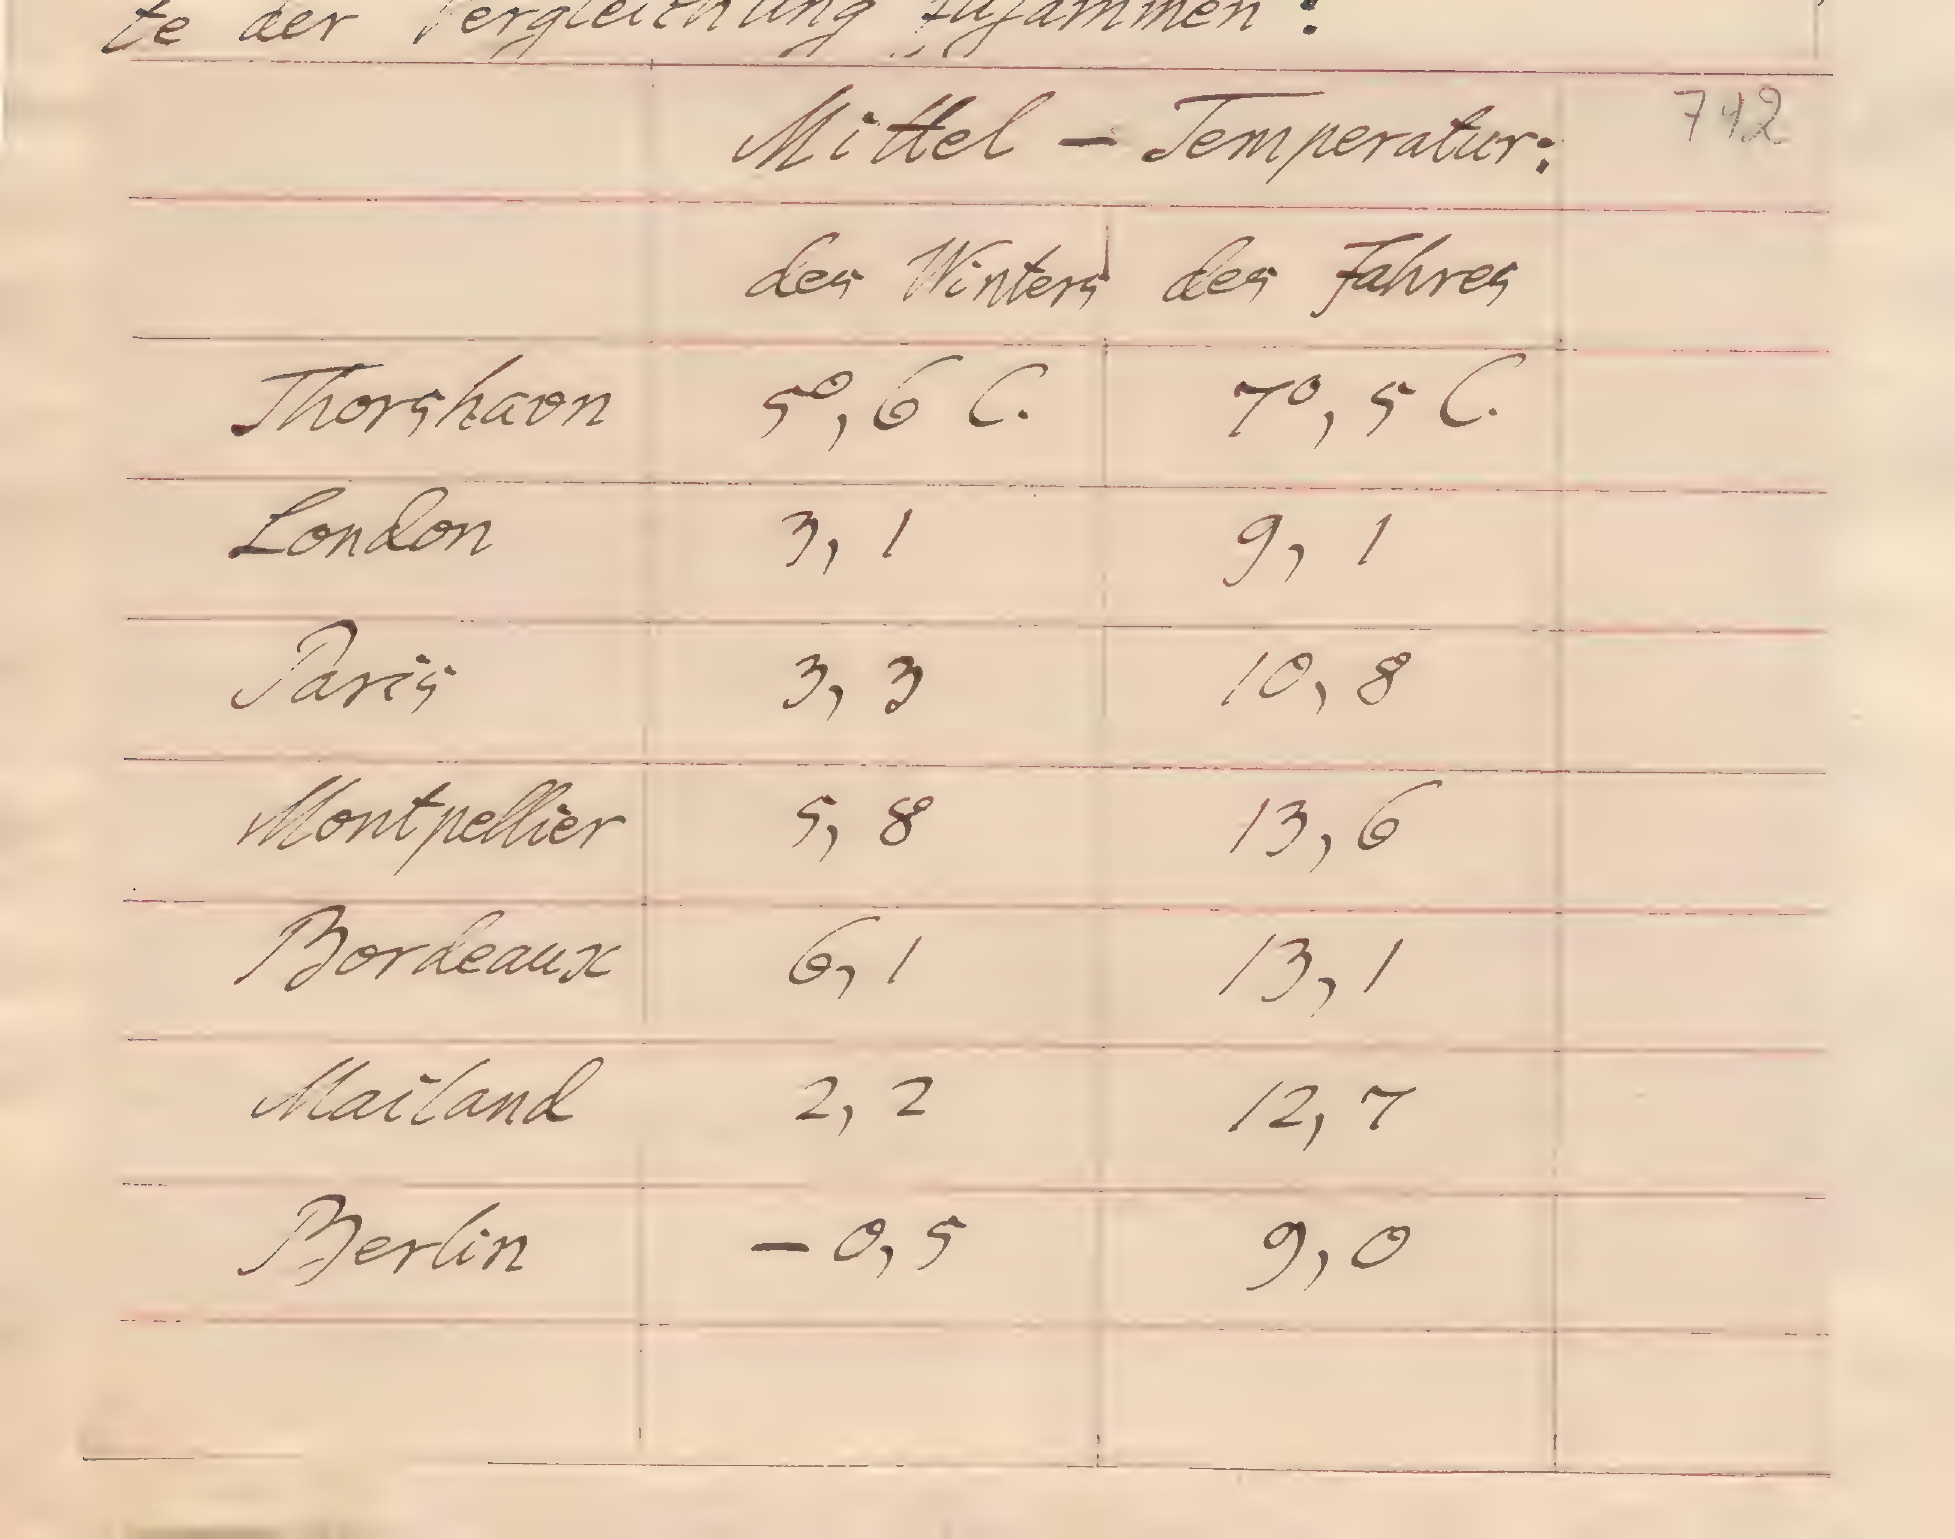 te der Vergleichung zusammen:
Mittel – Temperatur: 742
des Winters des Jahres
Thorshavn 5°,6 C. 7°,5 C.
London 3,1 9,1
Paris 3,3 10,8
Montpellier 5,8 13,6
Bordeaux 6,1 13,1
Mailand 2,2 12,7
Berlin – 0,5 9,0